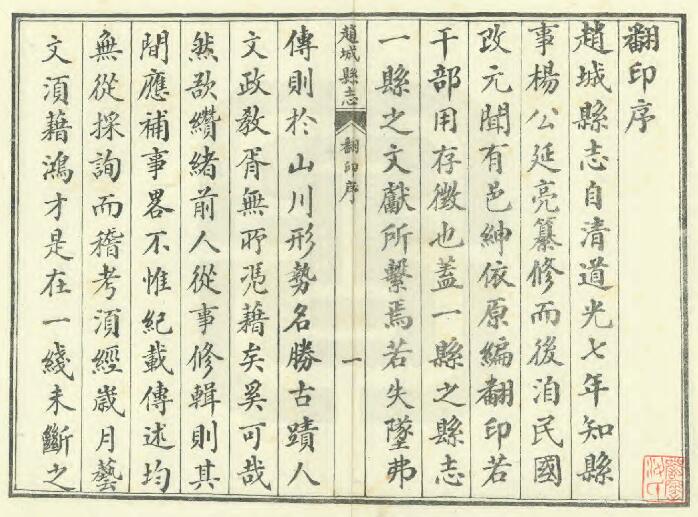 翻印序
趙城縣志自清道光七年知縣
事楊公延亮纂修而後洎民國
改元聞有邑紳依原編翻印若
干部用存徵也蓋一縣之縣志
一縣之文獻所繫焉若失墜弗
趙城縣志
翻印序
一
傳則於山川形勢名勝古蹟人
文政教胥無所憑藉矣奚可哉
然欲纘緒前人從事修輯則其
間應補事畧不惟紀載傳述均
無從採詢而稽考須經歲月藝
文須藉鴻才是在一綫未斷之